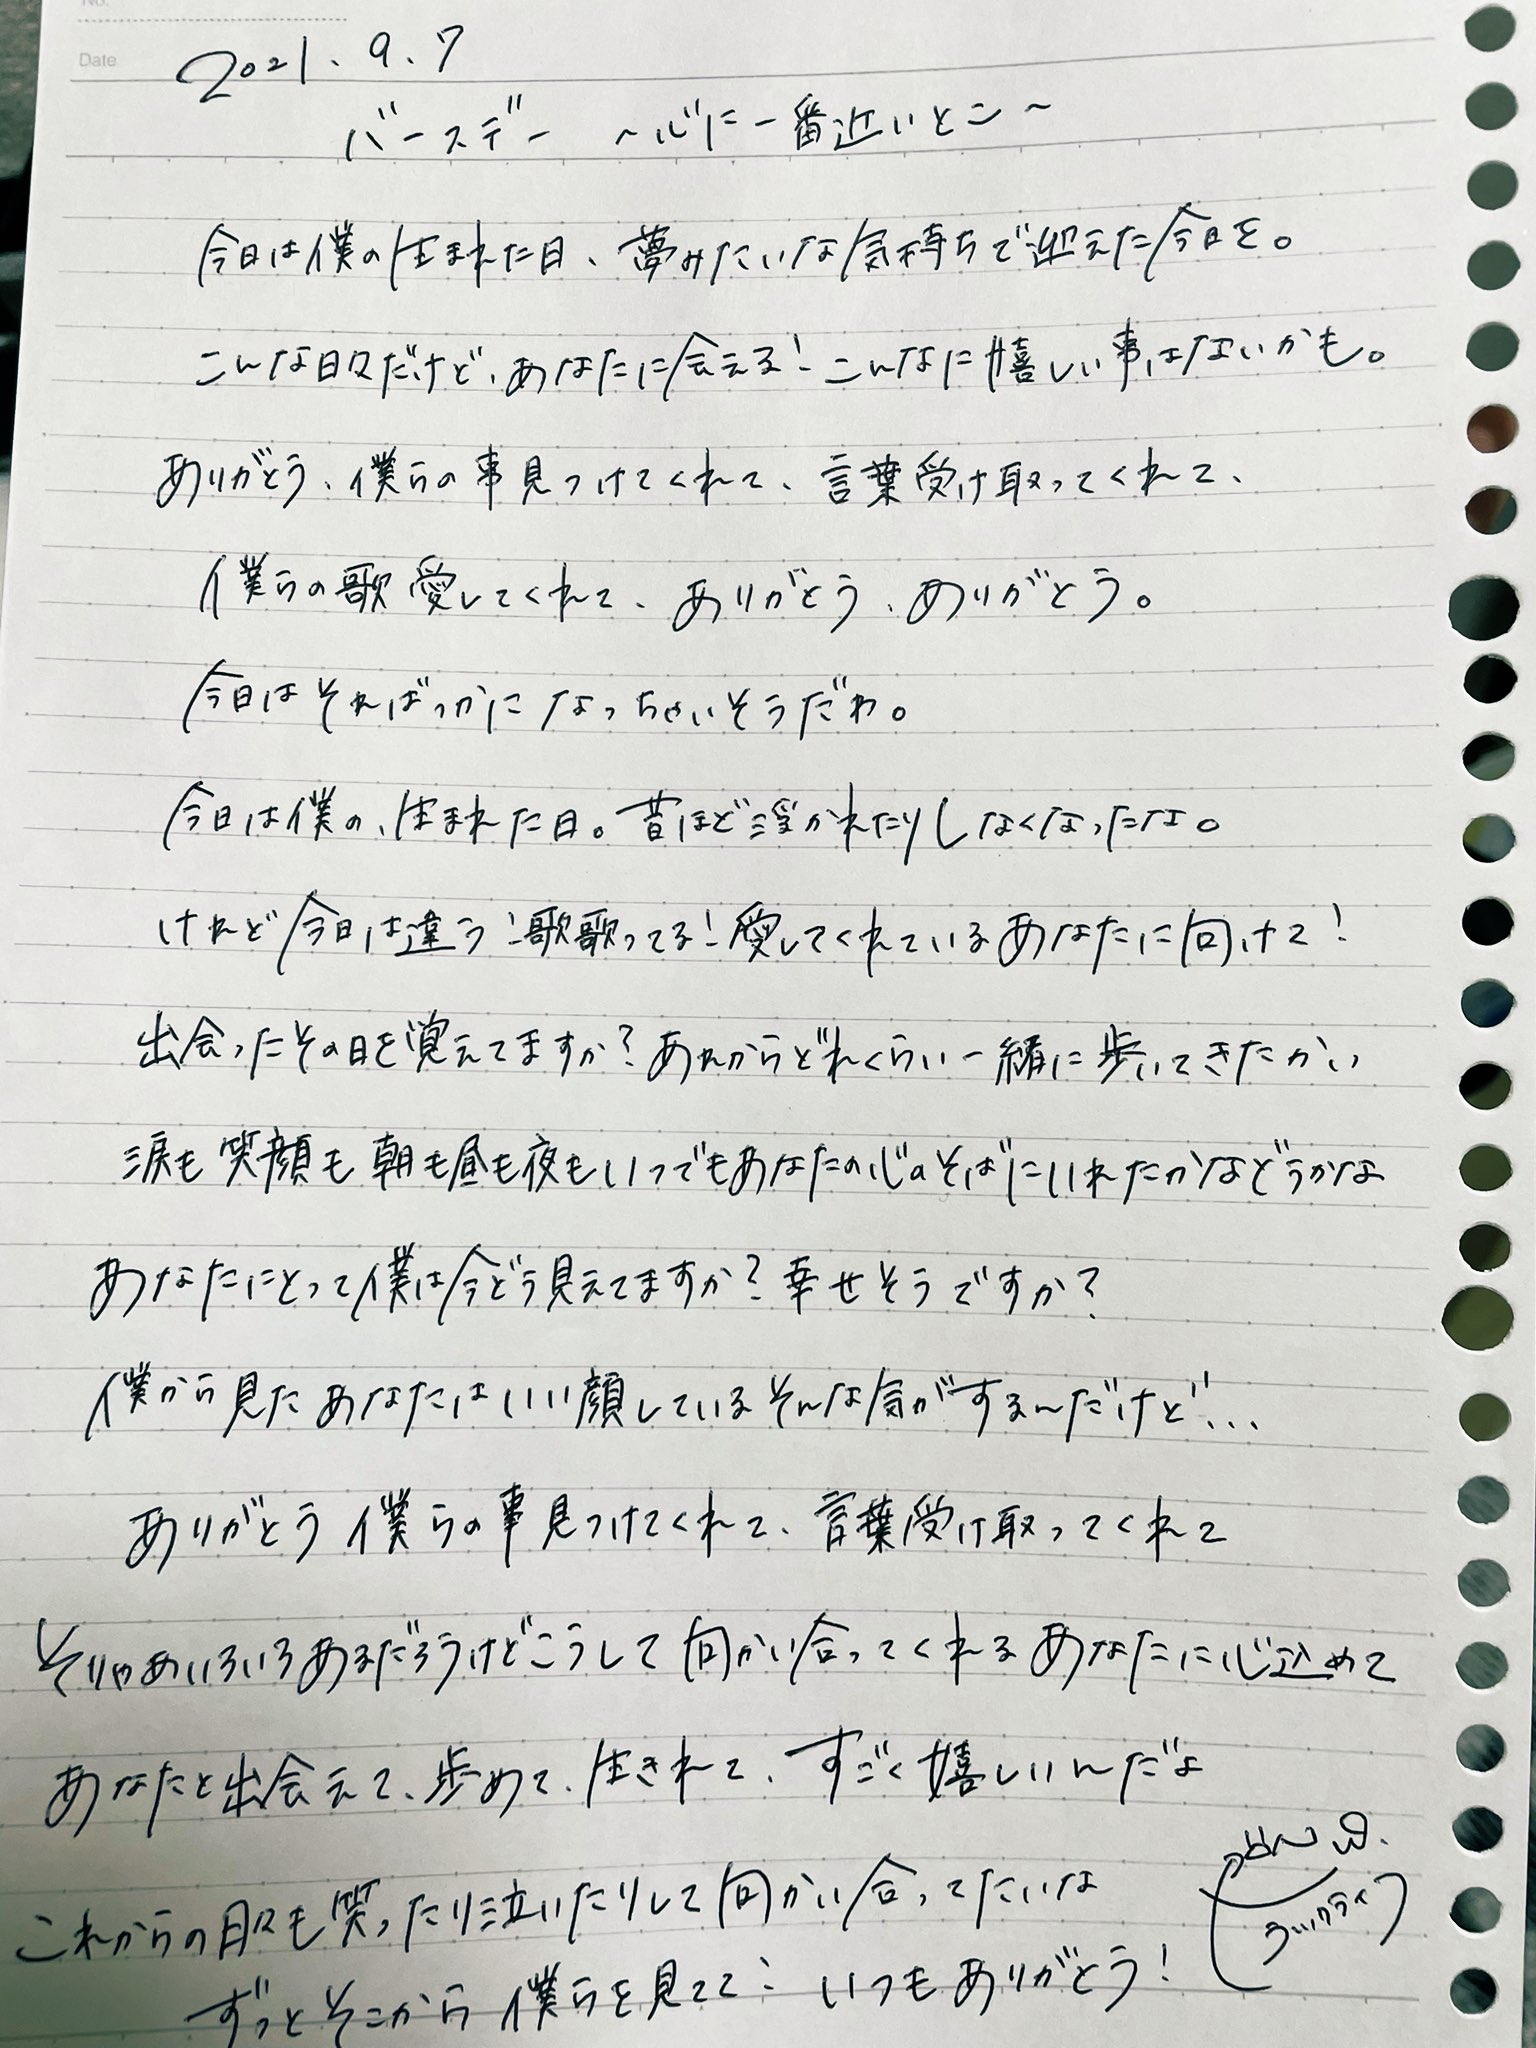 No.
Date
2021.9.7
バースデー ～心に一番近いとこ～
今日は僕の生まれた日、夢みたいな気持ちで迎えた今日を。
こんな日々だけど、あなたに会える！こんなに嬉しい事はないかも。
ありがとう、僕らの事見つけてくれて、言葉受け取ってくれて、
僕らの歌愛してくれて、ありがとう、ありがとう。
今日はそればっかになっちゃいそうだわ。
今日は僕の、生まれた日。昔ほど浮かれたりしなくなったな。
けれど今日は違う！歌歌ってる！愛してくれているあなたに向けて！
出会ったその日を覚えてますか？あれからどれくらい一緒に歩いてきたかい
涙も笑顔も朝も昼も夜もいつでもあなたの心のそばにいれたかなどうかな
あなたにとって僕は今どう見えてますか？幸せそうですか？
僕から見たあなたはいい顔しているそんな気がするんだけど...
ありがとう僕らの事見つけてくれて、言葉受け取ってくれて
そりゃあいろいろあるだろうけどこうして向かい合ってくれるあなたに心込めて
あなたと出会えて、歩めて、生きれて、すごく嬉しいんだよ
これからの日々も笑ったり泣いたりして向かい合ってたいな
ずっとそこから僕らを見てて！いつもありがとう！